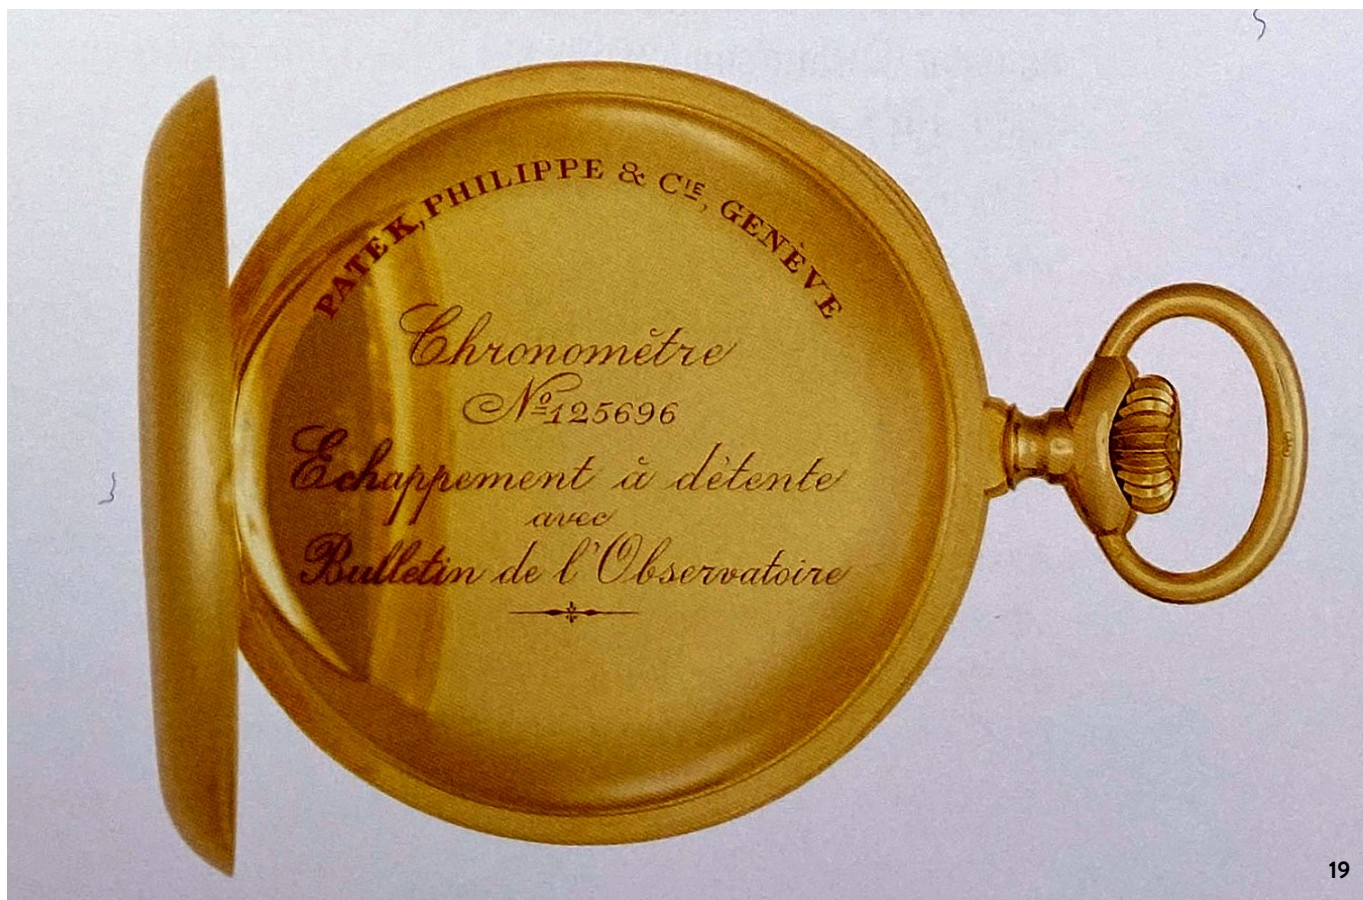 PATEK, PHILIPPE & CIE, GENÈVE
Chronomètre
No 125696
Echappement à détente
avec
Bulletin de l'Observatoire
19